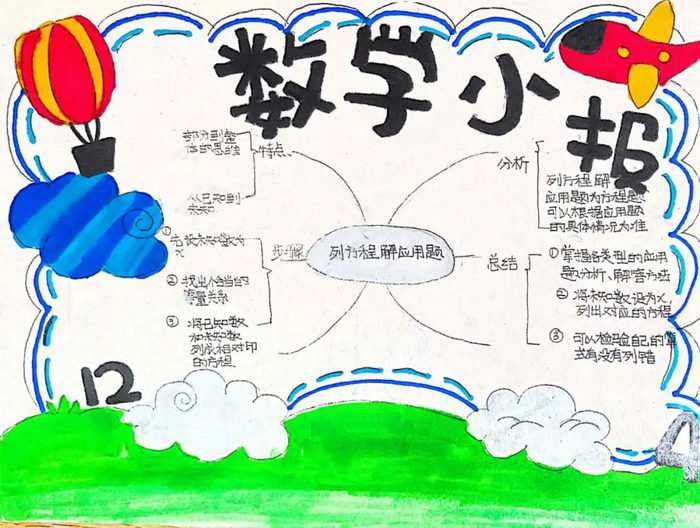 数学小报
部分到整
体的思维
特点
从已知到
未知
分析
列方程解
应用题为方程题
可以根据应用题
的具体情况为准
列方程解应用题
步骤
①先设未知数为
x
② 找出恰当的
等量关系
③ 将已知数
和未知数
列成相对印
的方程
总结
①掌握各类型的应用
题分析、解答方法
② 将未知数设为x,
列出对应的方程
③ 可以检验自己的算
式有没有列错
12
4